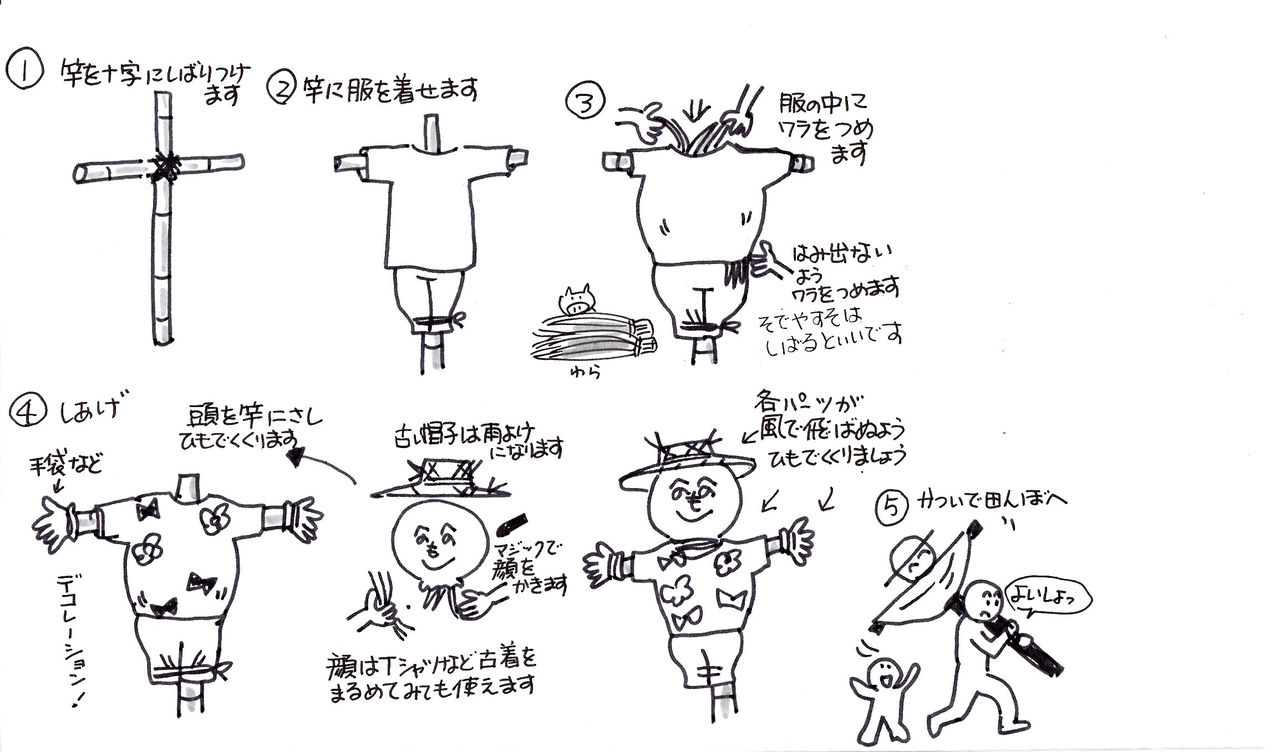 ① 竿を十字にしばりつけ
ます
② 竿に服を着せます
③
服の中に
ワラをつめ
ます
はみ出ない
よう
ワラをつめます
そでやすそは
しばるといいです
わら
④ しあげ
手袋など
デコレーション!
頭を竿にさし
ひもでくくります
古い帽子は雨よけ
になります
マジックで
顔を
かきます
顔はTシャツなど古着を
まるめてみても使えます
各パーツが
風で飛ばぬよう
ひもでくくりましょう
⑤ かついで田んぼへ
よいしょっ